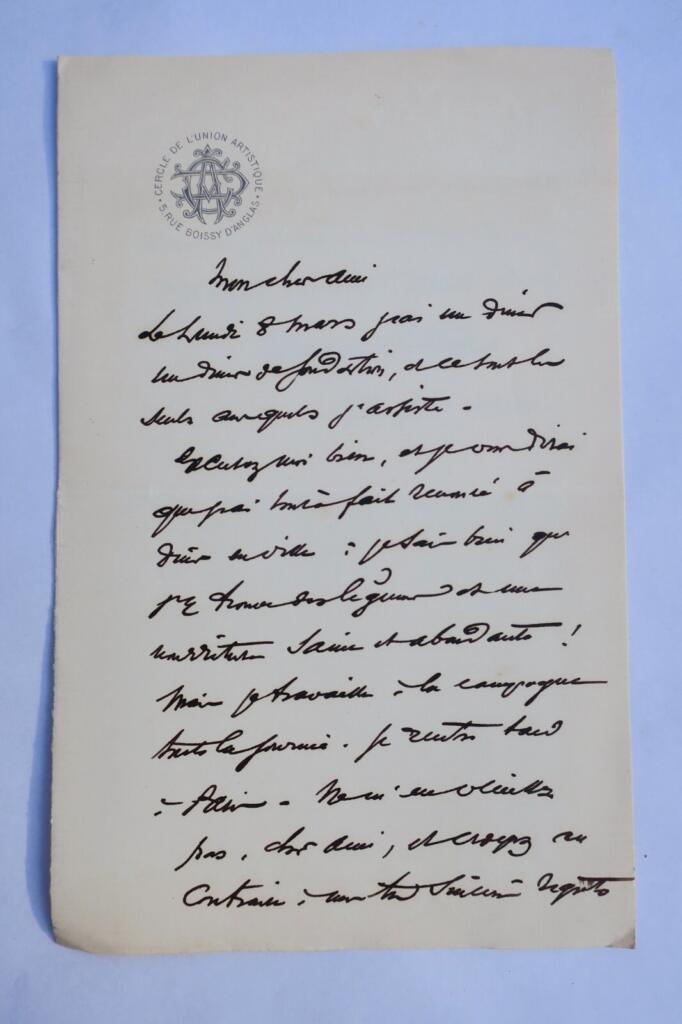 CERCLE DE L'UNION ARTISTIQUE
5, RUE BOISSY D'ANGLAS
Mon cher ami
Le Lundi 8 mars j'ai un diner
un diner de fondation, et ce sont les
seuls auxquels j'assiste.
Excusez moi bien, et je vous dirai
que j'ai tout à fait renoncé à
diner en ville : je sais bien que
j'y trouve des légumes et une
nourriture saine et abondante !
Mais je travaille à la campagne
toute la journée. je rentre tard
à Paris. Ne m'en veuillez
pas, cher ami, et croyez au
contraire à mes très sincères regrets